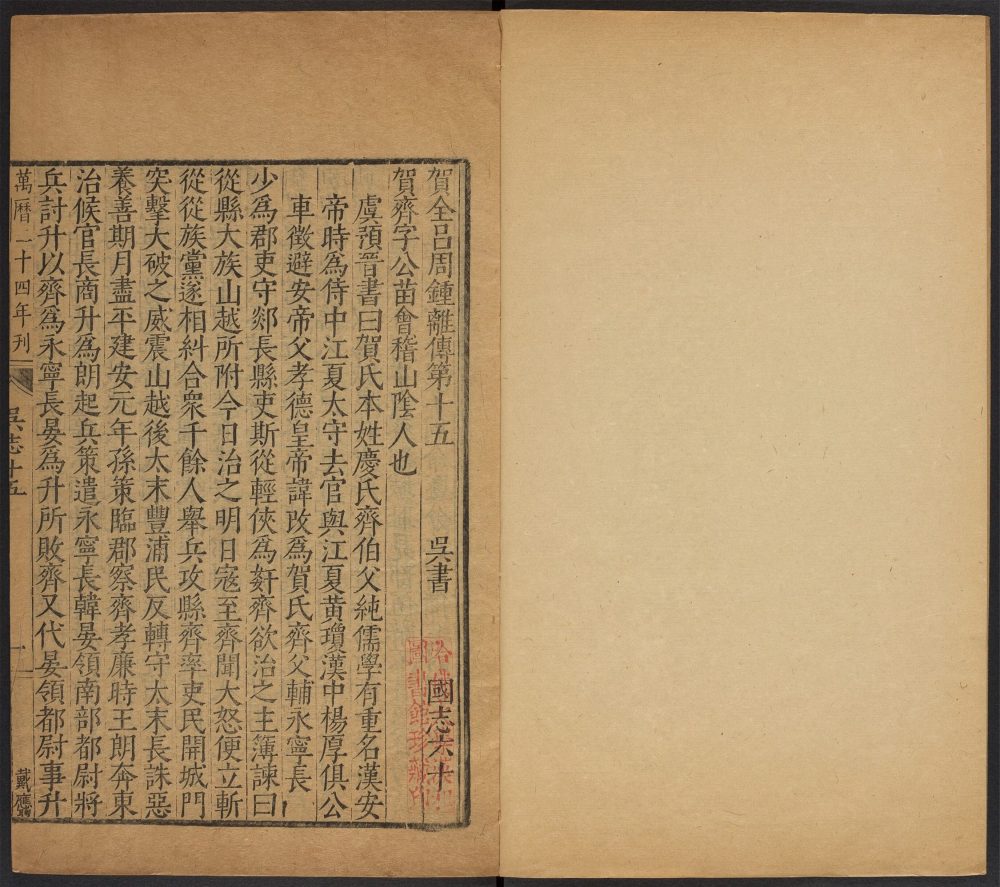 賀全呂周鍾離傳第十五　吳書　國志六十
賀齊字公苗會稽山陰人也
虞預晉書曰賀氏本姓慶氏齊伯父純儒學有重名漢安
帝時爲侍中江夏太守去官與江夏黃瓊漢中楊厚俱公
車徵避安帝父孝德皇帝諱改爲賀氏齊父輔永寧長
少爲郡吏守郯長縣吏斯從輕俠爲奸齊欲治之主簿諫曰
從縣大族山越所附今日治之明日寇至齊聞大怒便立斬
從從族黨遂相糾合衆千餘人舉兵攻縣齊率吏民開城門
突擊大破之威震山越後太末豐浦民反轉守太末長誅惡
養善期月盡平建安元年孫策臨郡察齊孝廉時王朗奔東
治候官長商升爲朗起兵策遣永寧長韓晏領南部都尉將
兵討升以齊爲永寧長晏爲升所敗齊又代晏領都尉事升
萬曆二十四年刊
吳志十五
一
戴應
圖書館珍藏印